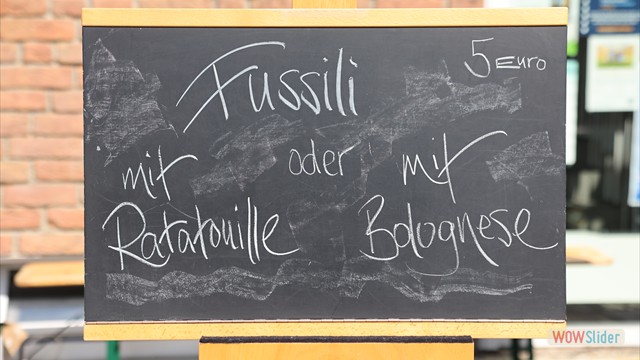 Fussili 5 Euro
mit oder mit
Ratatouille Bolognese
WOWSlider